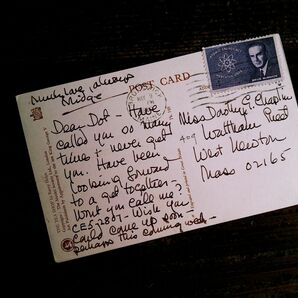 Much love always
Midge
POST CARD
Dear Dot - Have
called you so many
times & never get
you. Have been
looking forward
to a get together
Wont you call me?
CE5-2807 - Wish you
could come up soon -
perhaps this coming week -
Miss Dorothy E. Chaplin
409 Waltham Street
West Newton
Mass 02165